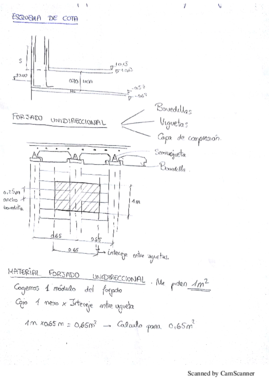 ESQUEMA DE COTA
S
FORJADO UNIDIRECCIONAL
Bovedillas
Viguetas
Capa de compresión
Semivigueta
Bovedilla
ancho
bovedilla
1m
0.65
0.65
0.65
Intereje entre viguetas
MATERIAL FORJADO UNIDIRECCIONAL. Me piden 1m²
Cogemos 1 módulo del forjado
Cojo 1 metro x Intereje entre vigueta
1m x 0.65m = 0.65m² → Calculo para 0.65m²
Scanned by CamScanner